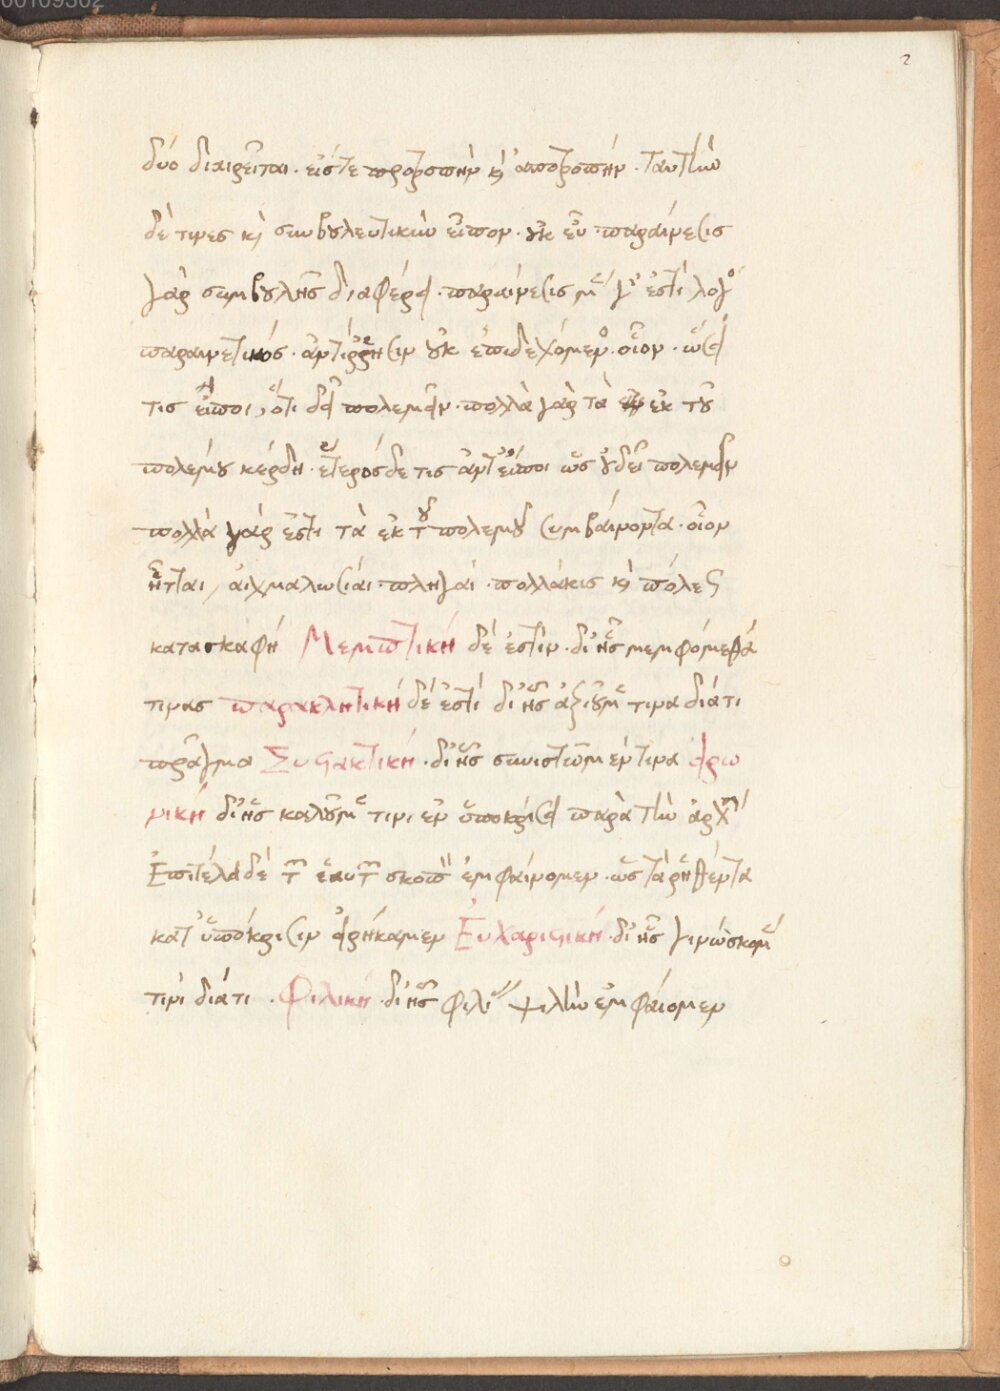 00109302
2
δύο διαιρεῖται· εἴς τε προτροπὴν κ̀ ἀποτροπήν· ταύτην
δέ τινες κ̀ συμβουλευτικὴν εἶπον· οὐκ εὖ· παραίνεσις
γὰρ συμβουλῆς διαφέρει· παραίνεσις μ γ ἐστὶ λόγ
παραινετικός· ἀντίρρησιν οὐκ ἐπιδεχόμεν· οἷον· ὡσεί
τις εἴποι, ὅτι δεῖ πολεμεῖν· πολλὰ γὰρ τὰ ἐκ τοῦ
πολέμου κέρδη· ἕτερος δέ τις ἀντείποι ὡς οὐ δεῖ πολεμεῖν
πολλὰ γάρ ἐστι τὰ ἐκ τοῦ πολέμου συμβαίνοντα· οἷον
ἧτται, αἰχμαλωσίαι· πληγαί· πολλάκις κ̀ πόλεως
κατασκαφή Μεμπτική δέ ἐστιν· δι' ἧς μεμφόμεθά
τινας παρακλητική δέ ἐστί δι' ἧς ἀξιοῦμ τινα διά τι
πρᾶγμα Συστακτική· δι' ἧς συνιστῶμέν τινα εἰρω
νική δι' ἧς καλοῦμ τινι ἐν ὑποκρίσει παρὰ τὴν ἀρχ
Ἐπιτέλει δὲ τ ἑαυτ σκοπ ἐμφαίνομεν· ὡς τὰ ῥηθέντα
κατ' ὑπόκρισιν εἰρήκαμεν Εὐχαριστική· δι' ἧς γινώσκομ
τινί διά τι· Φιλική· δι' ἧς φιλί ψιλὴν ἐμφαίομεν